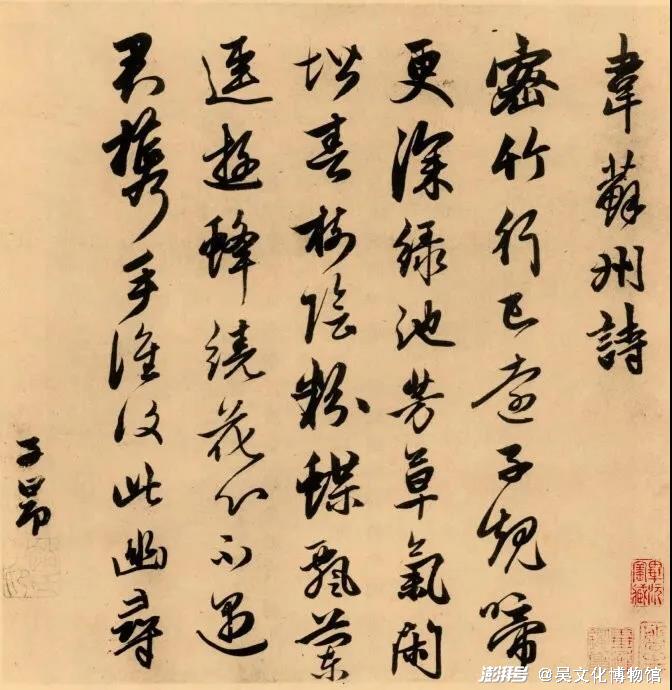 韋蘇州詩
密竹行已遠子規啼
更深綠池芳草氣閑
堦春樹陰粉蝶飄蘭
逕遊蜂繞花心不遇
君攜手誰復此幽尋
子昂
澎湃号 @吴文化博物馆